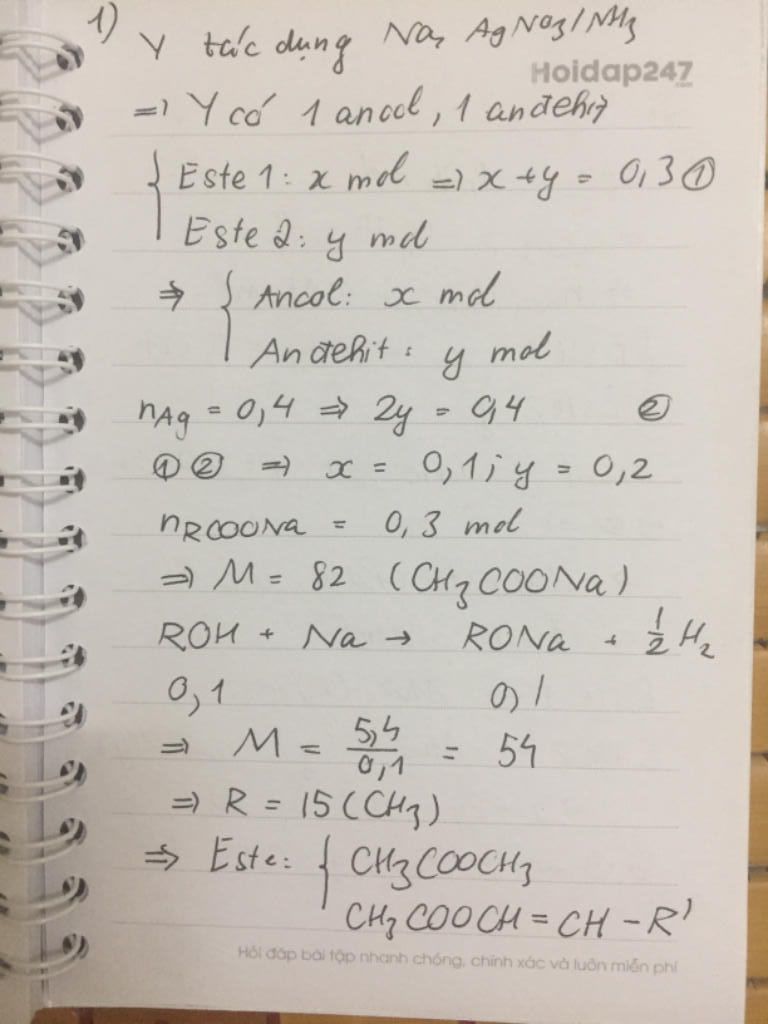 1) Y tác dụng Na, AgNO3/NH3
Hoidap247
.com
=> Y có 1 ancol, 1 anđehit
{ Este 1: x mol => x + y = 0,3 ①
Este 2: y mol
=> { Ancol: x mol
Anđehit: y mol
nAg = 0,4 => 2y = 0,4 ②
① ② => x = 0,1; y = 0,2
nRCOONa = 0,3 mol
=> M = 82 (CH3COONa)
ROH + Na → RONa + 1/2 H2
0,1 0,1
=> M = 5,4/0,1 = 54
=> R = 15 (CH3)
=> Este: { CH3COOCH3
CH3COOCH = CH - R'
Hỏi đáp bài tập nhanh chóng, chính xác và luôn miễn phí